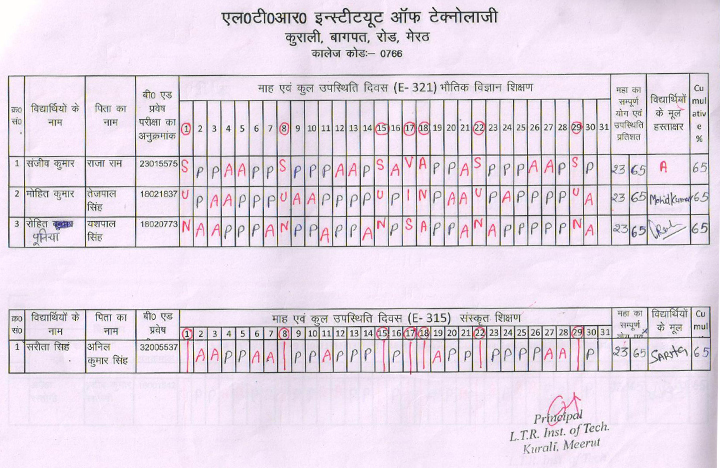 एल0टी0आर0 इन्स्टीटयूट ऑफ टेक्नोलाजी
कुराली, बागपत, रोड, मेरठ
कालेज कोडः– 0766
क0 सं0 विद्यार्थियों के नाम पिता का नाम बी0 एड प्रवेष परीक्षा का अनुक्रमांक माह एवं कुल उपस्थिति दिवस (E- 321) भौतिक विज्ञान शिक्षण महा का सम्पूर्ण योग एवं उपस्थिति प्रतिशत विद्यार्थियों के मूल हस्ताक्षर Cu mul ativ e %
1 2 3 4 5 6 7 8 9 10 11 12 13 14 15 16 17 18 19 20 21 22 23 24 25 26 27 28 29 30 31
1 संजीव कुमार राजा राम 23015575 S P P A A P P S P P P A A P S A V A P A S P P P A A P S P 23 65 A 65
2 मोहित कुमार तेजपाल सिंह 18021837 U P A A P P P U A A P P P P U P I N P A A U P A P P P U A 23 65 Mohit Kumar 65
3 रोहित पूनिया यशपाल सिंह 18020773 N A A P P P A N P P A P P A N P S A P P A N A P P P P N A 23 65 65
क0 सं0 विद्यार्थियों के नाम पिता का नाम बी0 एड प्रवेष माह एवं कुल उपस्थिति दिवस (E- 315) संस्कृत शिक्षण महा का सम्पूर्ण विद्यार्थियों के मूल Cu mul
1 2 3 4 5 6 7 8 9 10 11 12 13 14 15 16 17 18 19 20 21 22 23 24 25 26 27 28 29 30 31
1 सरीता सिंह अनिल कुमार सिंह 32005537 A A P P A A P P A P P P P A P P P P P P A A P 23 65 SARITA 65
Principal
L.T.R. Inst. of Tech.
Kurali, Meerut